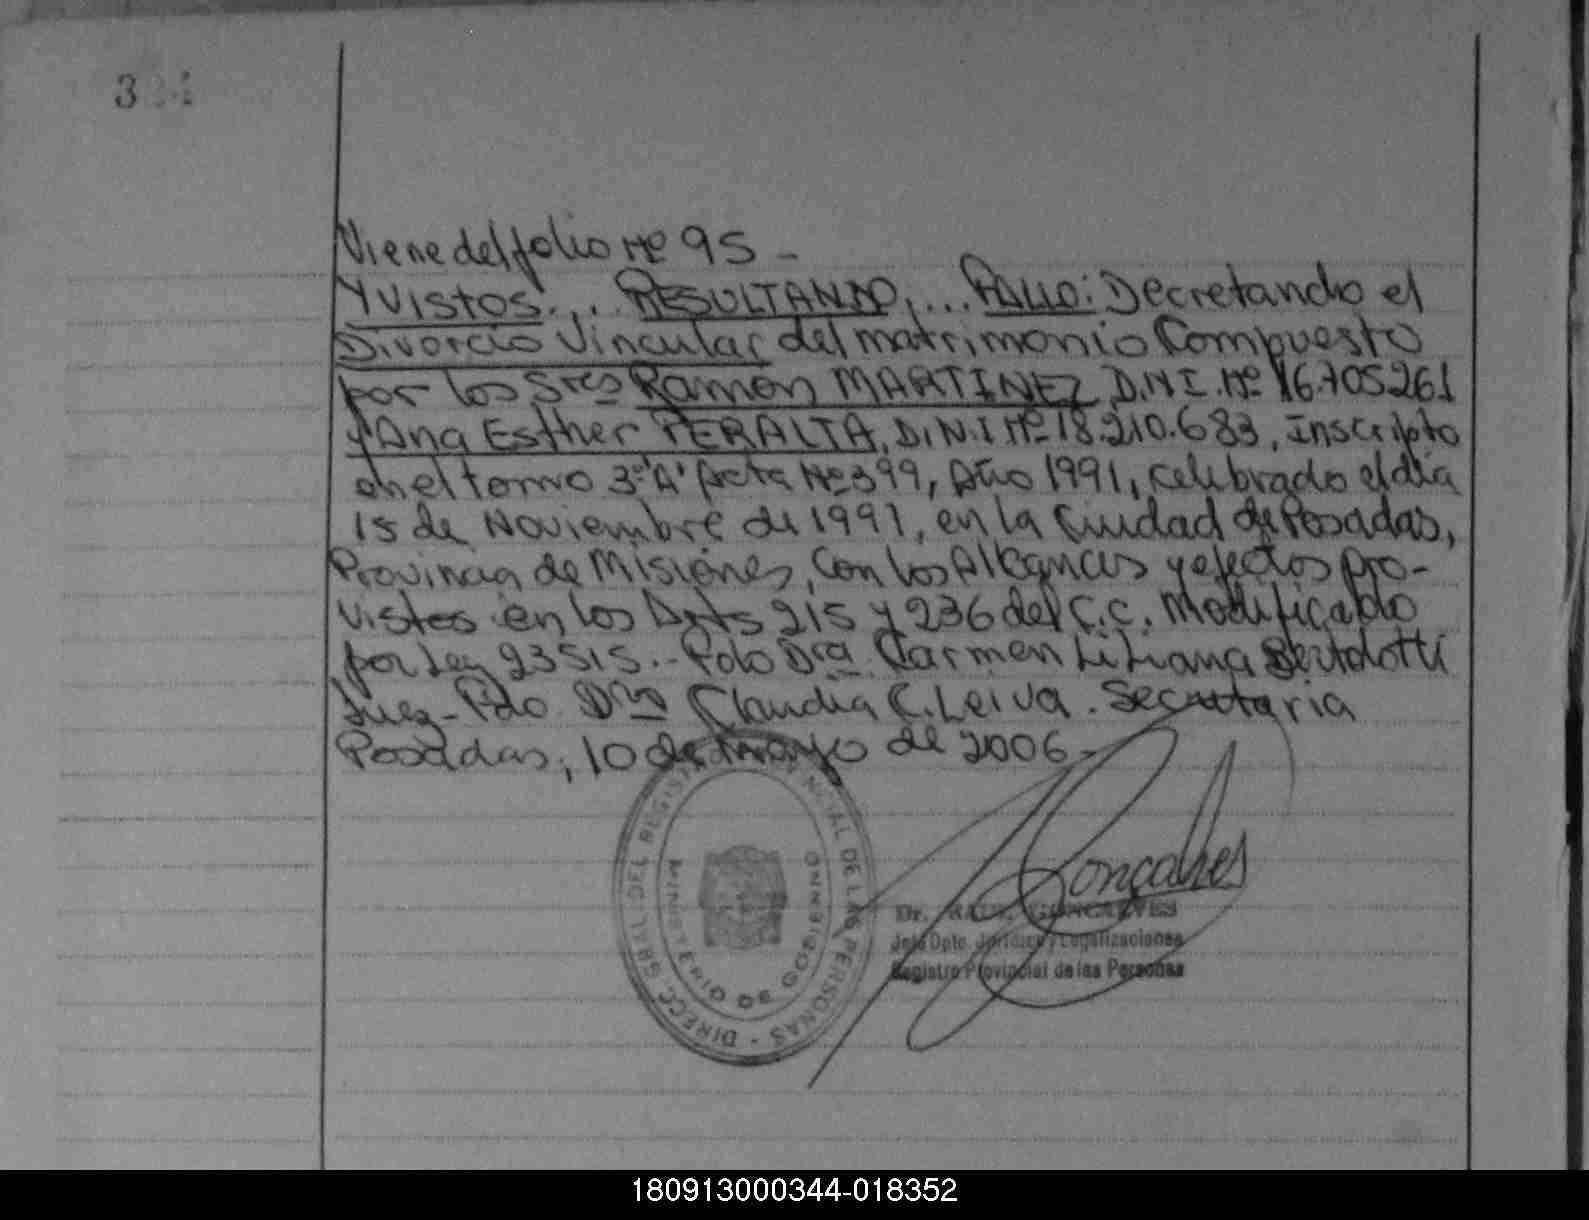 334
Viene del folio Nº 95 -
Y VISTOS... RESULTANDO,... FALLO: Decretando el
Divorcio Vincular del matrimonio Compuesto
por los Sres Ramon MARTINEZ D.N.I. Nº 16.705261
y Ana Esther PERALTA, D.N.I Nº 18.210.683, Inscripto
en el tomo 3º "A" Acta Nº 399, Año 1991, celebrado el día
15 de Noviembre de 1991, en la Ciudad de Posadas,
Provincia de Misiones, Con los Alcances y efectos pro-
vistos en los Arts 215 y 236 del C.C. Modificado
por Ley 23515.- Fdo Dra. Carmen Liliana Bertolotti
Juez - Fdo Dra Claudia C. Leiva. Secretaria
Posadas, 10 de mayo de 2006 -
DIRECC. GRAL. DEL REGIST DE LAS PERSONAS -
MINISTERIO DE GOBIERNO
Gonçalves
Dr. RAUL GONCALVES
Jefe Dpto. Jurídico y Legalizaciones
Registro Provincial de las Personas
180913000344-018352